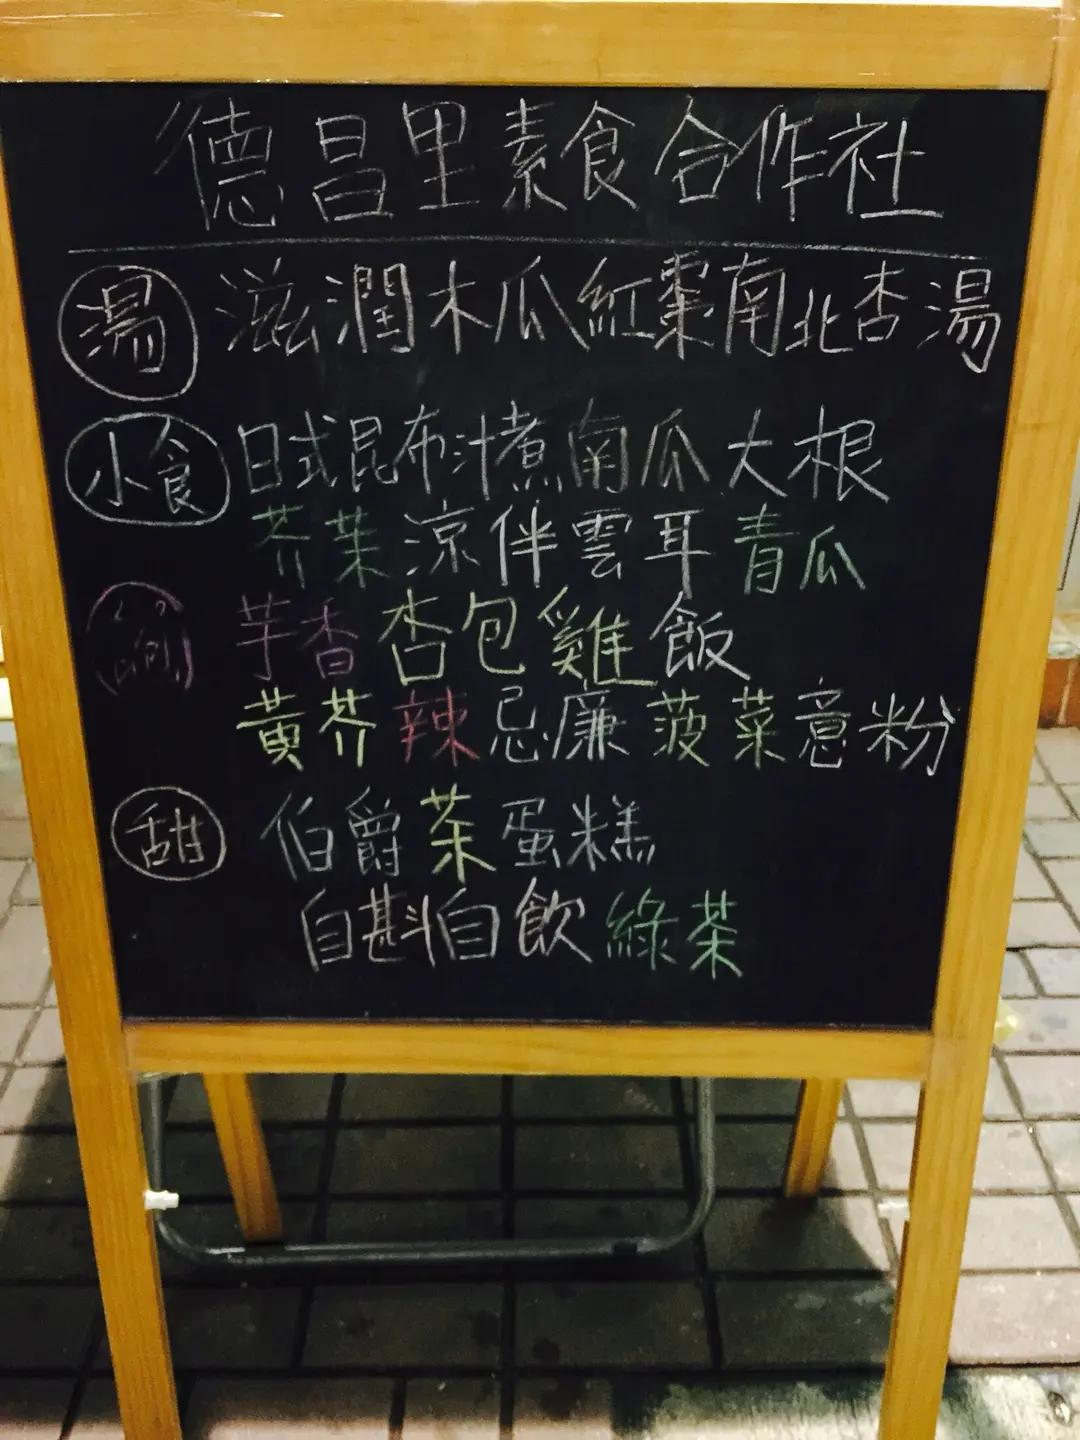 德昌里素食合作社
湯 滋潤木瓜紅棗南北杏湯
小食 日式昆布汁煮南瓜大根
芥茉涼伴雲耳青瓜
芋香杏包雞飯
黃芥辣忌廉菠菜意粉
甜 伯爵茶蛋糕
自斟自飲綠茶